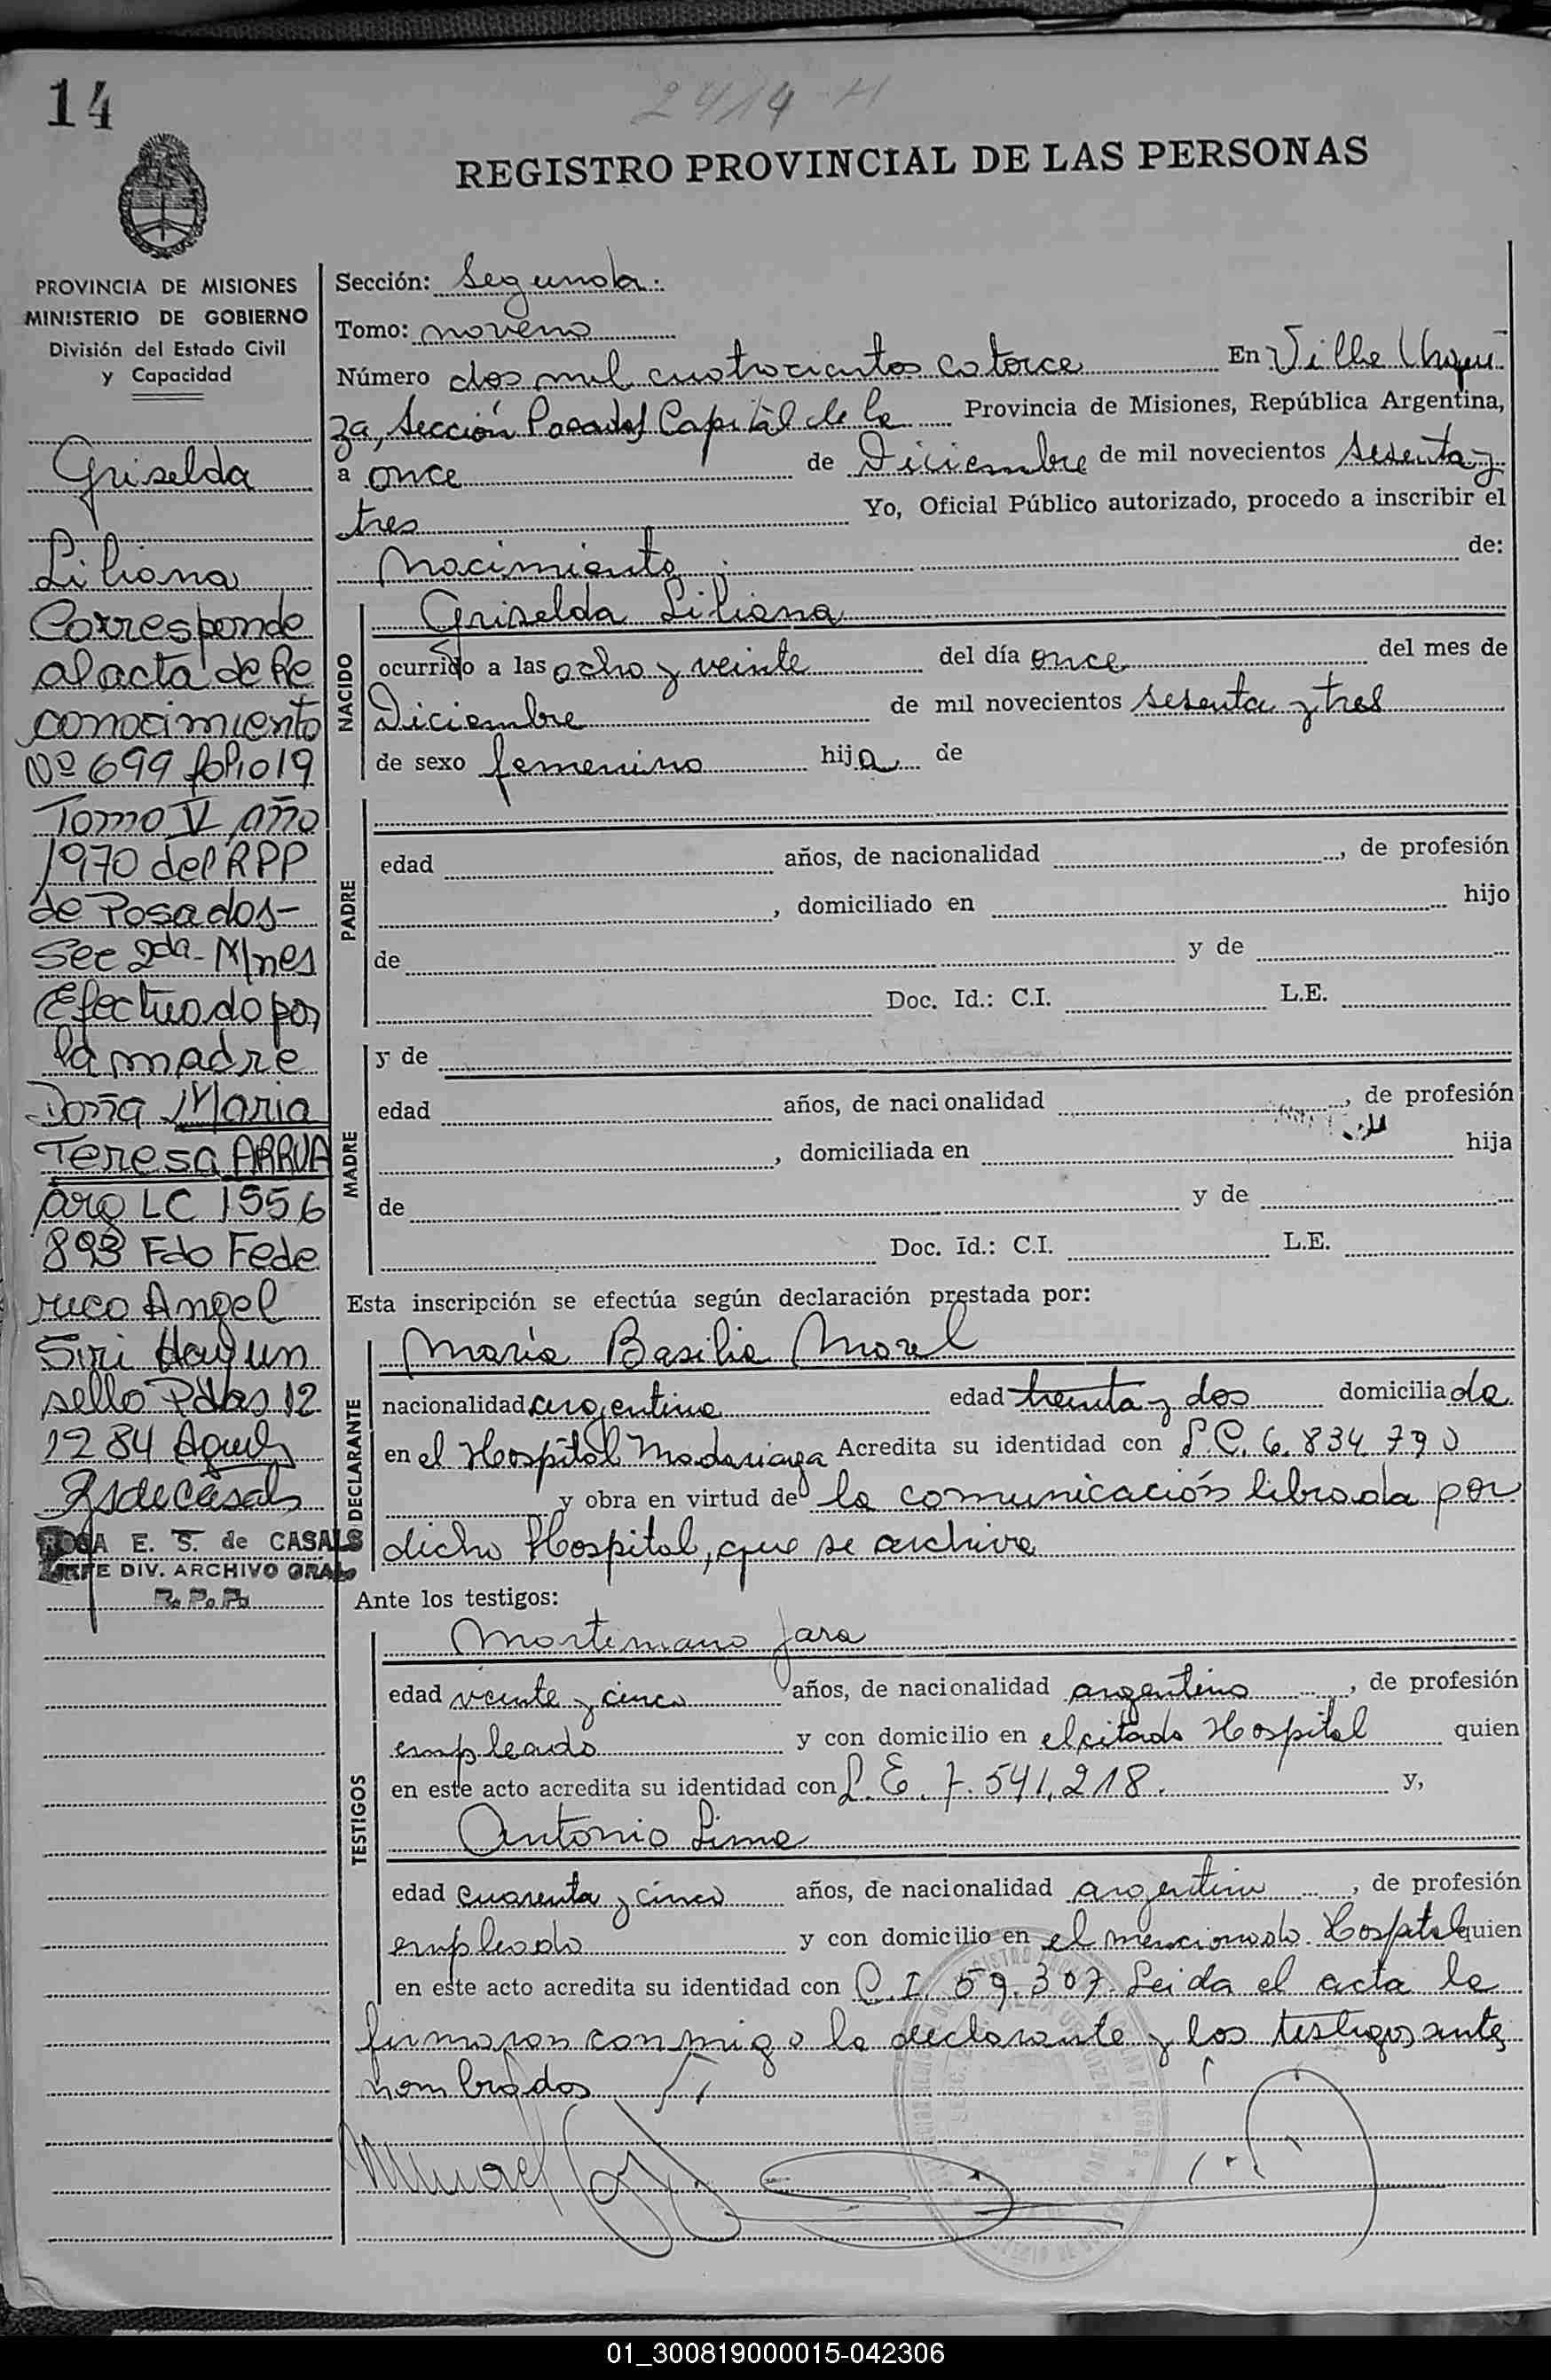 14
2414 H
REGISTRO PROVINCIAL DE LAS PERSONAS
PROVINCIA DE MISIONES
MINISTERIO DE GOBIERNO
División del Estado Civil
y Capacidad
Griselda
Liliana
Corresponde
al acta de Re
conocimiento
Nº 699 folio 19
Tomo V año
1970 del RPP
de Posadas-
Sec 2da- M/nes
Efectuado por
la madre
Doña Maria
Teresa ARRUA
arg LC 1556
893 Fdo Fede
rico Angel
Siri Hay un
sello Pdas 12
12 84
ROSA E. S. de CASALS
JEFE DIV. ARCHIVO GRAL.
R. P. P.
Sección: Segunda.
Tomo: noveno
Número dos mil cuatrocientos catorce En Villa Urqui
za, Sección Posadas Capital de la Provincia de Misiones, República Argentina,
a once de Diciembre de mil novecientos sesenta y
tres Yo, Oficial Público autorizado, procedo a inscribir el
Nacimiento de:
NACIDO
Griselda Liliana
ocurrido a las ocho y veinte del día once del mes de
Diciembre de mil novecientos sesenta y tres
de sexo femenino hija de
PADRE
edad años, de nacionalidad , de profesión
, domiciliado en hijo
de y de
Doc. Id.: C.I. L.E.
MADRE
y de
edad años, de nacionalidad , de profesión
, domiciliada en hija
de y de
Doc. Id.: C.I. L.E.
Esta inscripción se efectúa según declaración prestada por:
DECLARANTE
María Basilia Morel
nacionalidad argentina edad treinta y dos domiciliada
en el Hospital Madariaga Acredita su identidad con L.C. 6.834.790
y obra en virtud de la comunicación librada por
dicho Hospital, que se archiva
Ante los testigos:
TESTIGOS
Martiniano Jara
edad veinte y cinco años, de nacionalidad argentino , de profesión
empleado y con domicilio en el citado Hospital quien
en este acto acredita su identidad con L.E. 7.541.218. y,
Antonio Lima
edad cuarenta y cinco años, de nacionalidad argentino , de profesión
empleado y con domicilio en el mencionado Hospital quien
en este acto acredita su identidad con C.I. 59.307. Leida el acta la
firmaron conmigo la declarante y los testigos ante
nombrados
01_300819000015-042306